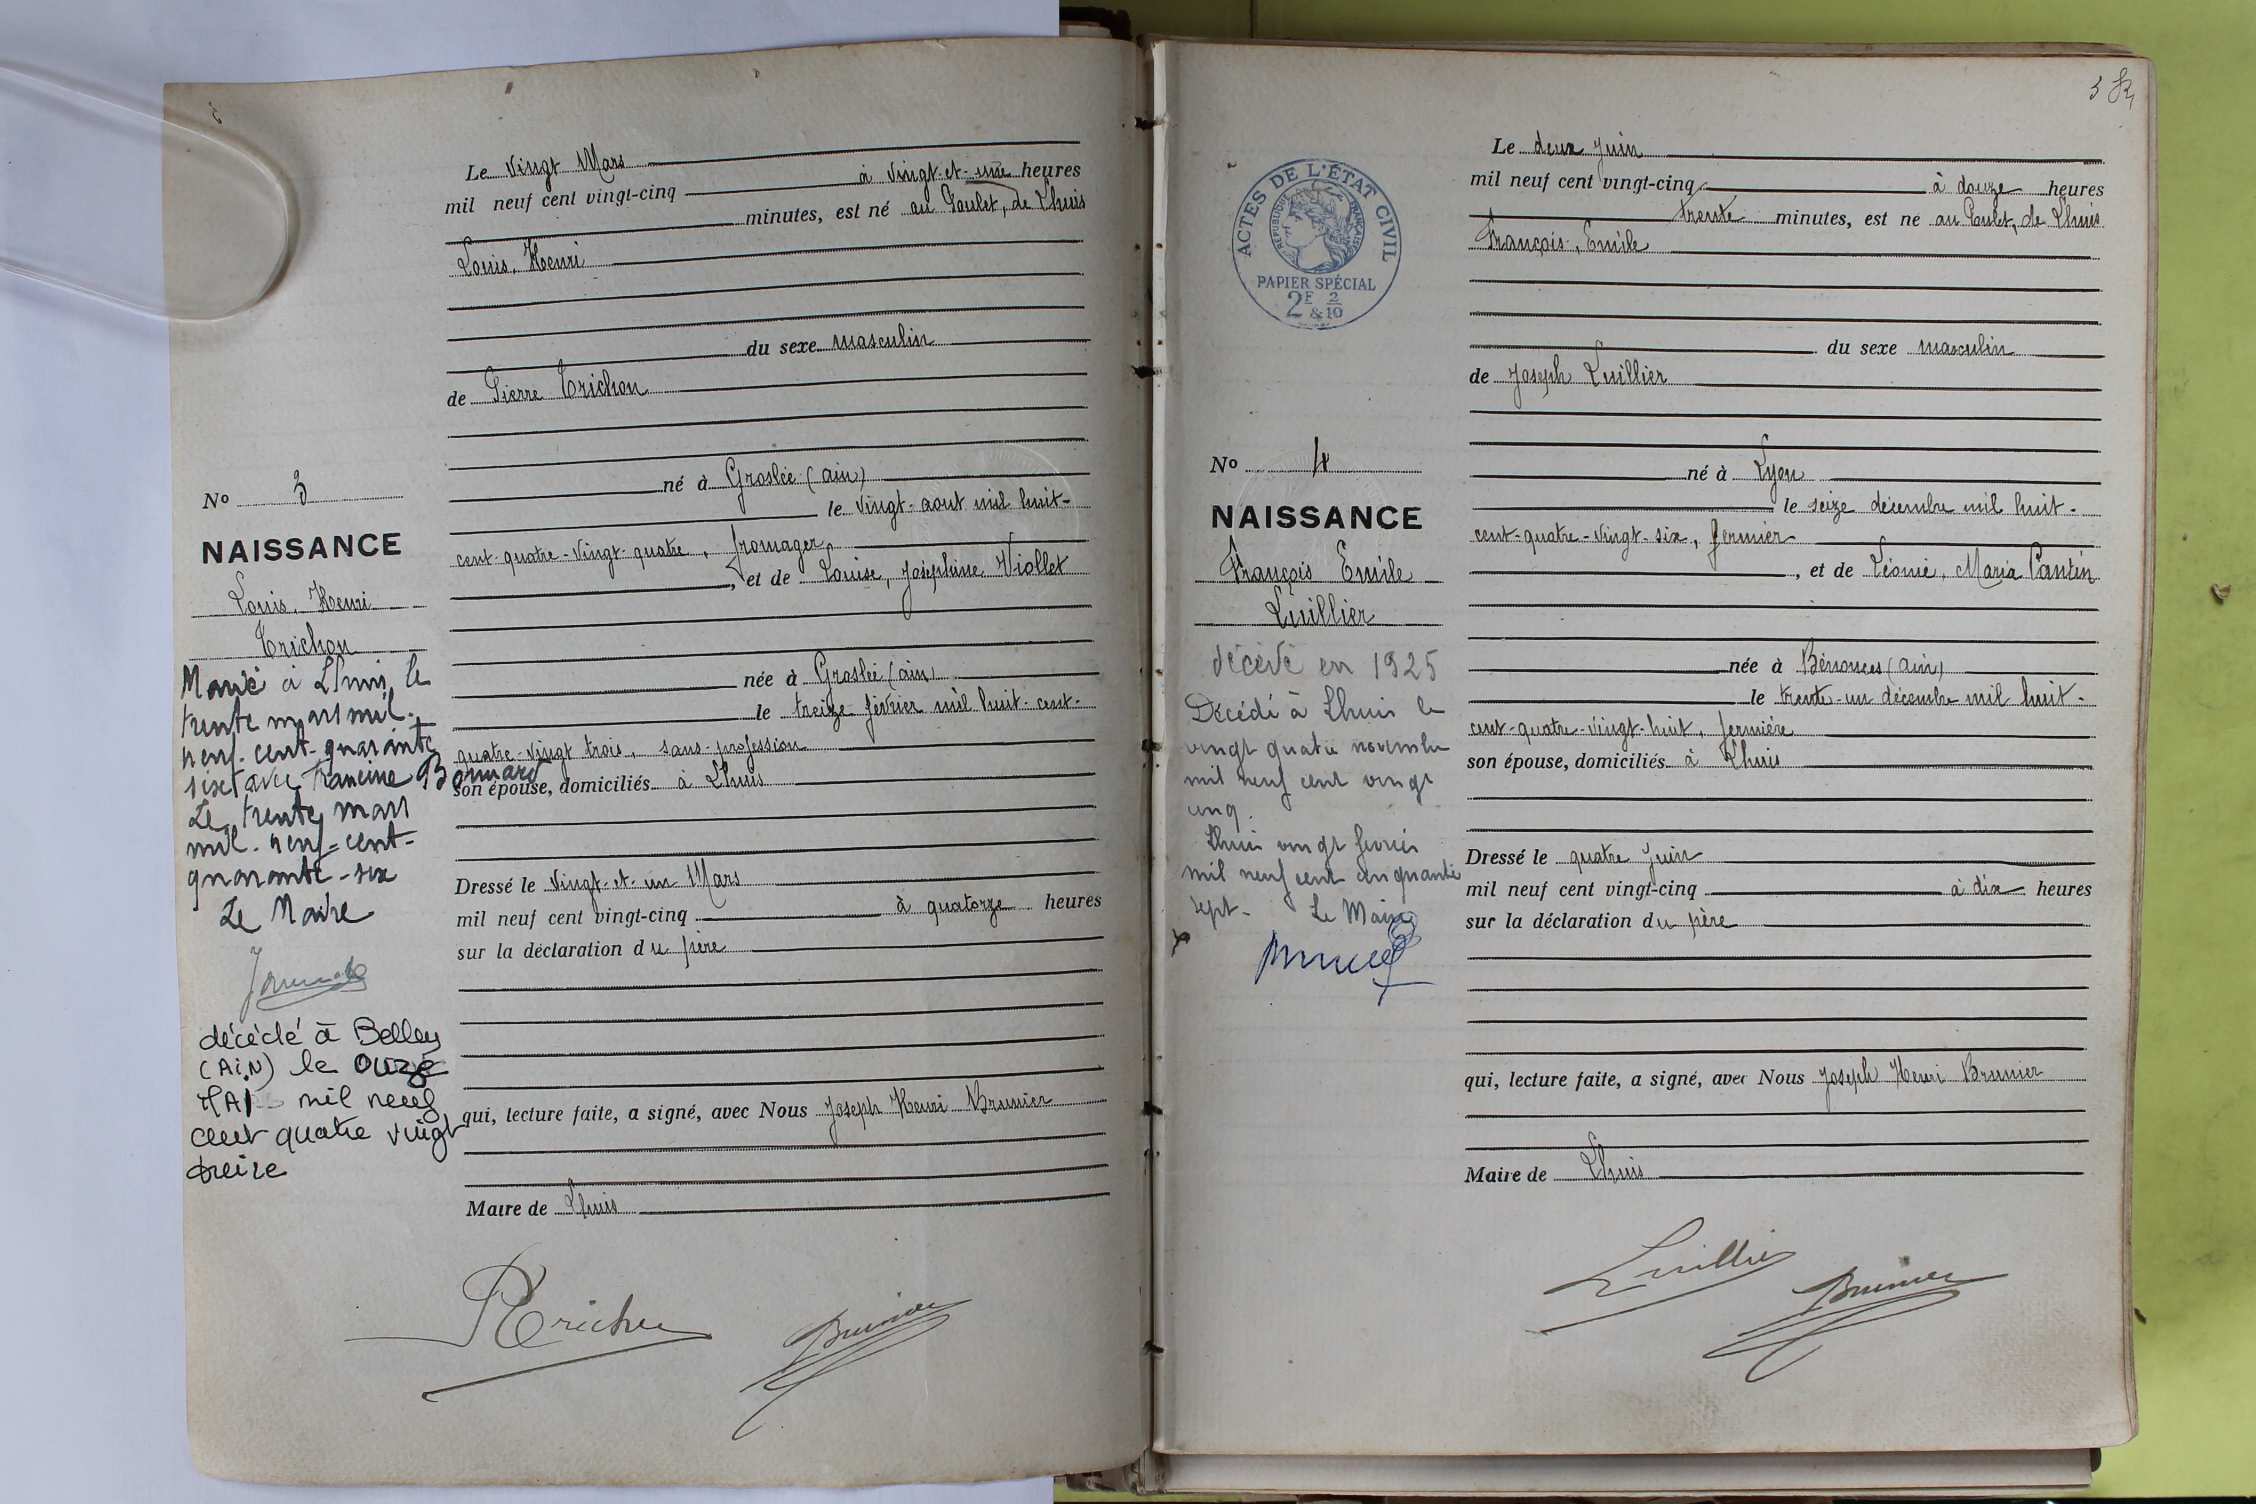 Le Vingt Mars
mil neuf cent vingt-cinq à vingt-et-une heures
minutes, est né au Goulet, de Lhuis
Louis, Henri
du sexe masculin
de Pierre Trichon
né à Groslée (ain)
le vingt-aout mil huit-
cent-quatre-vingt-quatre, fromager,
, et de Louise, Joséphine Viollet
née à Groslée (ain)
le treize février mil huit-cent-
quatre-vingt trois, sans-profession
son épouse, domiciliés à Lhuis
Dressé le vingt-et-un Mars
mil neuf cent vingt-cinq à quatorze heures
sur la déclaration du père
qui, lecture faite, a signé, avec Nous Joseph Henri Brunier
Maire de Lhuis
No 3
NAISSANCE
Louis, Henri
Trichon
Marié à Lhuis le
trente mars mil-
neuf-cent-quarante
six avec Francine Bornard
Le trente mars
mil-neuf-cent-
quarante-six
Le Maire
décédé à Belley
(AiN) le onze
MAI mil neuf
cent quatre vingt
treize
Trichon
Brunier
3
Le deux Juin
mil neuf cent vingt-cinq à douze heures
trente minutes, est né au Goulet, de Lhuis
François, Emile
du sexe masculin
de Joseph Luillier
né à Lyon
le seize décembre mil huit-
cent-quatre-vingt-six, fermier
, et de Léonie, Maria Pantin
née à Bénonces (ain)
le trente-un décembre mil huit-
cent-quatre-vingt-huit, fermière
son épouse, domiciliés à Lhuis
Dressé le quatre Juin
mil neuf cent vingt-cinq à dix heures
sur la déclaration du père
qui, lecture faite, a signé, avec Nous Joseph Henri Brunier
Maire de Lhuis
ACTES DE L'ÉTAT CIVIL
RÉPUBLIQUE FRANÇAISE
PAPIER SPÉCIAL
2F & 2/10
No 4
NAISSANCE
François Emile
Luillier
décédé en 1925
Décédé à Lhuis le
vingt quatre novembre
mil neuf cent vingt
cinq.
Lhuis vingt fevrier
mil neuf cent cinquante
sept - Le Maire
Luillier
Brunier